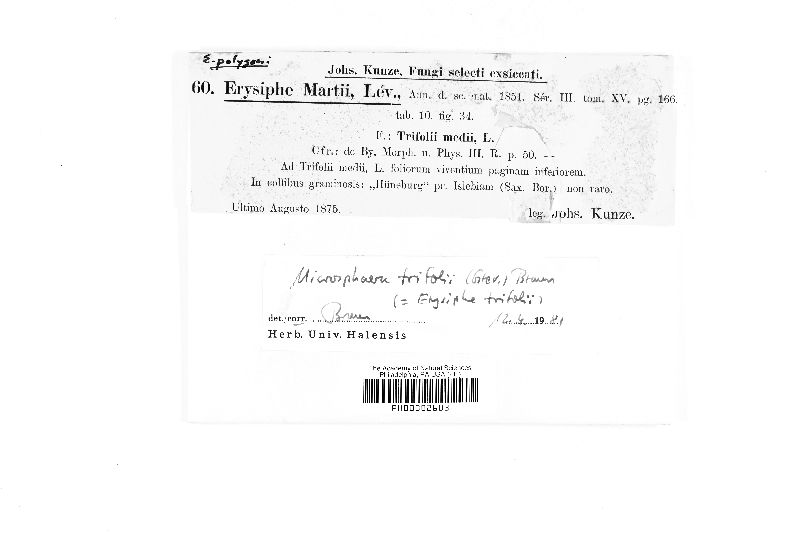 E. polygoni
Johs. Kunze, Fungi selecti exsiccati.
60. Erysiphe Martii, Lév., Ann. d. sc. nat. 1851. Sér. III. tom. XV. pg. 166.
tab. 10. fig. 34.
F.: Trifolii medii, L.
Cfr.: de By. Morph. u. Phys. III. R. p. 50. --
Ad Trifolii medii, L. foliorum viventium paginam inferiorem.
In collibus graminosis: „Hüneburg“ pr. Islebiam (Sax. Bor.) non raro.
Ultimo Augusto 1875. leg. Johs. Kunze.
Microsphaera trifolii (Grev.) Braun
(= Erysiphe trifolii)
det./corr. Braun 19 81
Herb. Univ. Halensis
The Academy of Natural Sciences
Philadelphia, PA USA (PH)
PH00002603